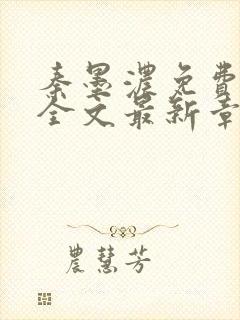 秦墨浓免费
全文最新章
農慧芳